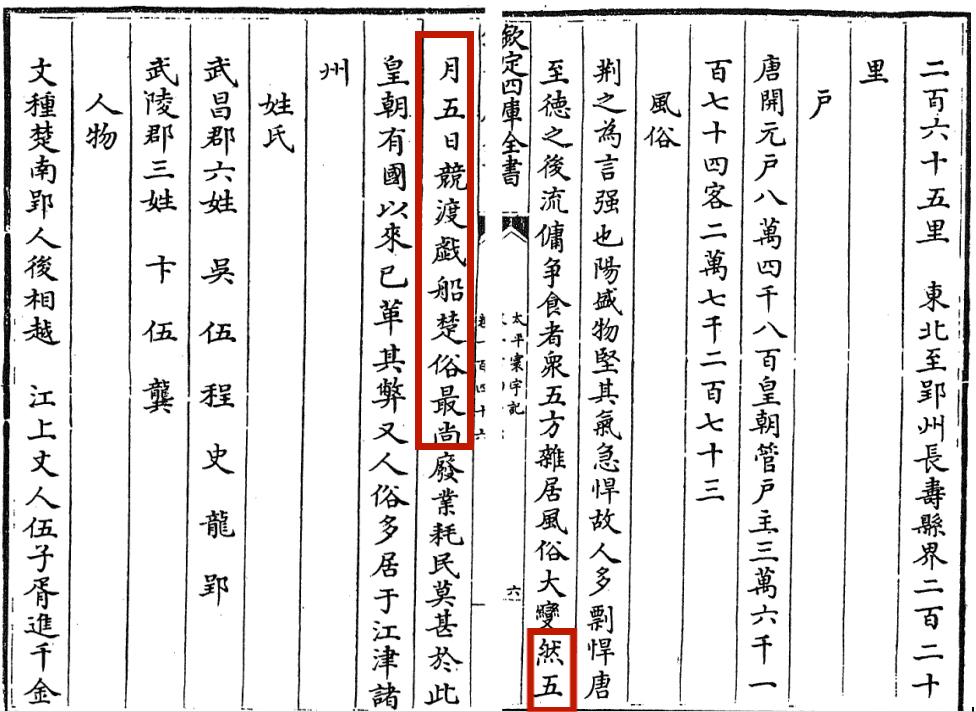 二百六十五里　東北至郢州長壽縣界二百二十
里
户
唐開元户八萬四千八百皇朝管户主三萬六千一
百七十四客二萬七千二百七十三
風俗
荆之為言强也陽盛物堅其氣急悍故人多剽悍唐
至徳之後流傭争食者衆五方雜居風俗大變然五
欽定四庫全書
太平寰宇記
六
月五日競渡戯船楚俗最尚廢業耗民莫甚於此
皇朝有國以來已革其弊又人俗多居于江津諸
州
姓氏
武昌郡六姓　吳　伍　程　史　龍　郢
武陵郡三姓　卞　伍　龔
人物
文種楚南郢人後相越　江上丈人伍子胥進千金